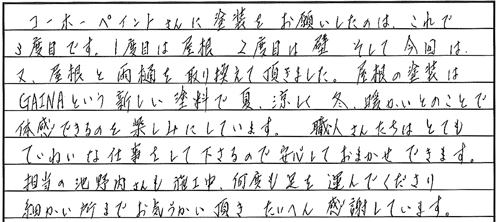 コーホーペイントさんに塗装をお願いしたのは、これで
3度目です。1度目は屋根 2度目は壁 そして今回は、
又、屋根と雨樋を取り換えて頂きました。屋根の塗装は
GAINAという新しい塗料で夏、涼しく 冬、暖かいとのことで
体感できるのを楽しみにしています。 職人さんたちはとても
ていねいな仕事をして下さるので安心しておまかせできます。
担当の池野内さんも施工中、何度も足を運んでくださり
細かい所までお気づかい頂き たいへん感謝しています。